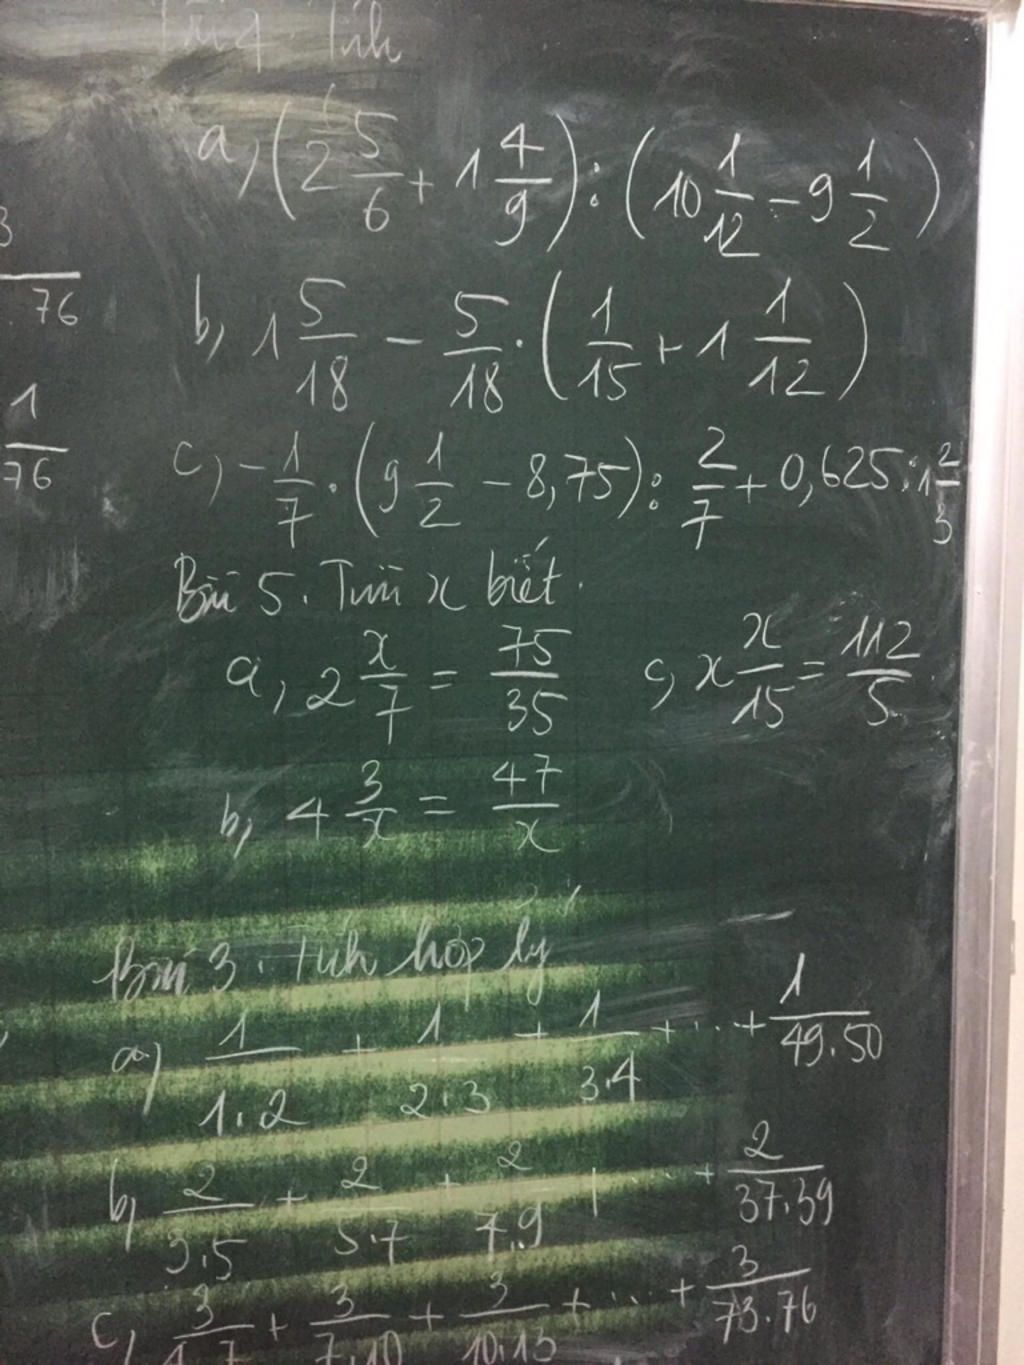 Bài 4. Tính
a, (2 5/6 + 1 4/9) : (10 1/12 - 9 1/2)
b, 1 5/18 - 5/18 . (1/15 + 1 1/12)
c, -1/7 . (9 1/2 - 8,75) : 2/7 + 0,625 : 1 2/3
Bài 5. Tìm x biết.
a, 2 x/7 = 75/35 c, x x/15 = 112/5
b, 4 3/x = 47/x
Bài 3. Tính hợp lý
a) 1/1.2 + 1/2.3 + 1/3.4 + ... + 1/49.50
b, 2/3.5 + 2/5.7 + 2/7.9 + ... + 2/37.39
c, 3/4.7 + 3/7.10 + 3/10.13 + ... + 3/73.76
3
76
1
76